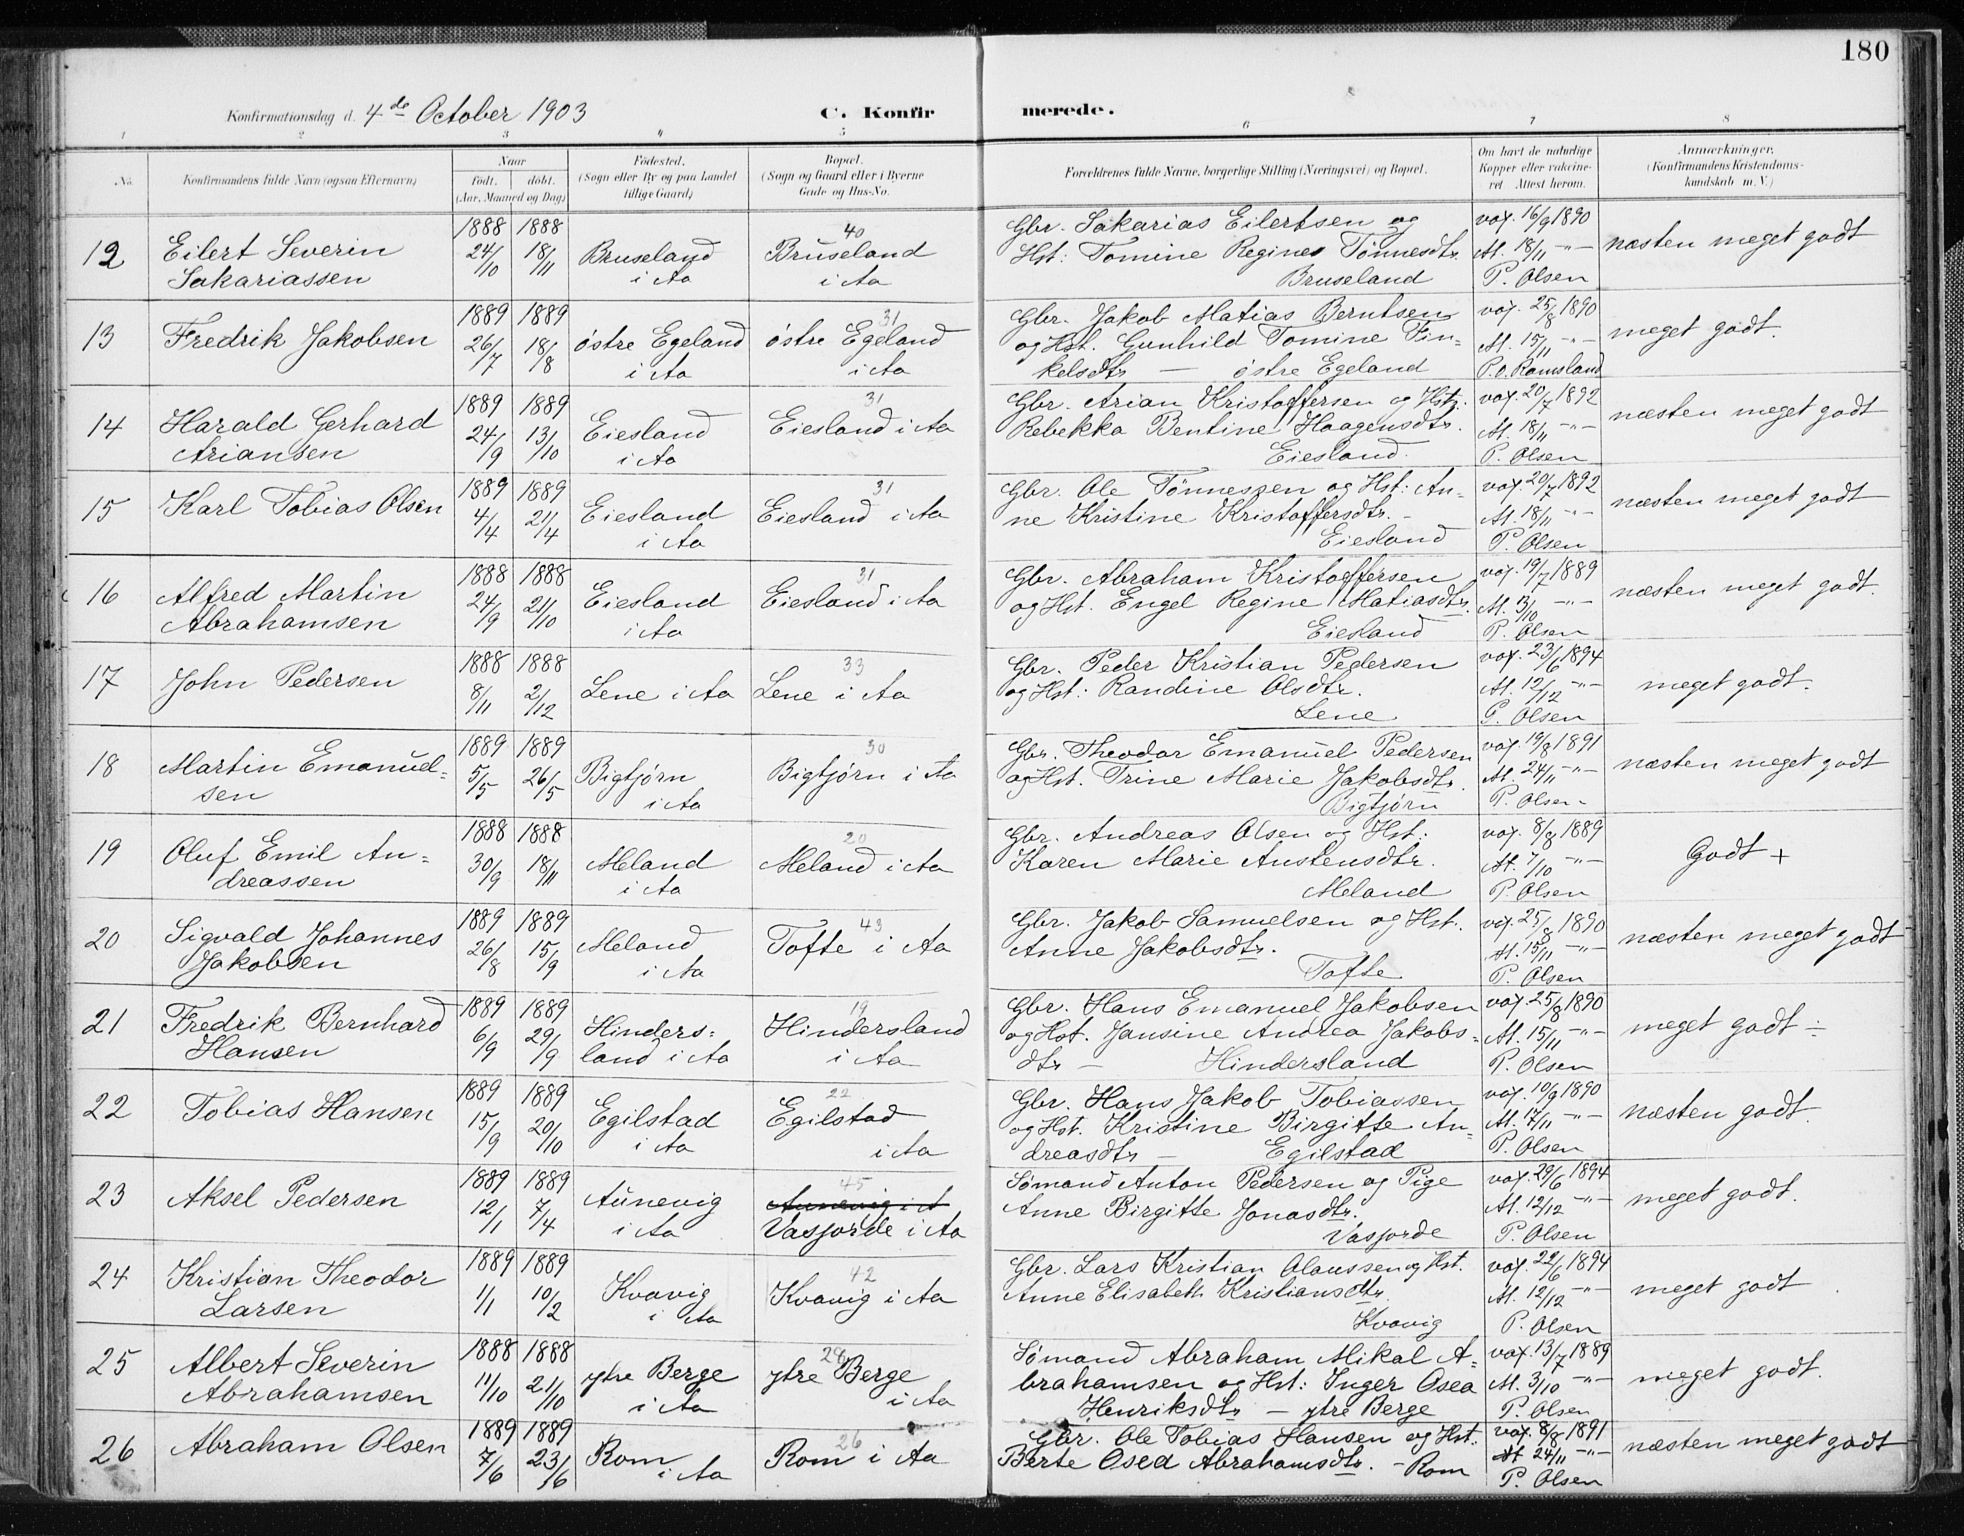 180
Konfirmationsdag d. 4de October 1903 C. Konfirmerede.
1 2 3 4 5 6 7 8
No. Konfirmandens fulde Navn (ogsaa Efternavn) Naar født. døbt. (Aar, Maaned og Dag) Fødested. (Sogn eller By og paa Landet tillige Gaard) Bopæl. (Sogn og Gaard eller i Byerne Gade og Hus-No. Forældrenes fulde Navne, borgerlige Stilling (Næringsvei) og Bopæl. Om havt de naturlige Kopper eller vaccineret. Attest herom. Anmærkninger, (Konfirmandens Kristendomskundskab m. V.)
12 Eilert Severin Sakariassen 1888 24/10 1888 18/11 Bruseland i Aa 40 Bruseland i Aa
Gbr. Sakarias Eilertsen og
Hst: Tomine Regine Tønnesdtr.
Bruseland
vax. 16/9 1890 At. 18/11 -"- P. Olsen næsten meget godt
13 Fredrik Jakobsen 1889 26/7 1889 18/8 østre Egeland i Aa 31 østre Egeland i Aa
Gbr. Jakob Matias Berntsen
og Hst. Gunhild Tomine Fin-
kelsdtr — østre Egeland
vax. 25/8 1890 At. 15/11 -"- P.O. Ramsland meget godt.
14 Harald Gerhard Ariansen 1889 24/9 1889 13/10 Eiesland i Aa 31 Eiesland i Aa
Gbr. Arian Kristoffersen og Hst:
Rebekka Bentine Haagensdtr.
Eiesland.
vax. 20/7 1892 At. 18/11 -"- P. Olsen næsten meget godt
15 Karl Tobias Olsen 1889 4/4 1889 21/4 Eiesland i Aa 31 Eiesland i Aa
Gbr. Ole Tønnessen og Hst: An-
ne Kristine Kristoffersdtr. -
Eiesland
vax. 20/7 1892 At. 18/11 -"- P. Olsen næsten meget godt
16 Alfred Martin Abrahamsen 1888 24/9 1888 21/10 Eiesland i Aa 31 Eiesland i Aa
Gbr. Abraham Kristoffersen
og Hst. Engel Regine Matiasdtr.
Eiesland
vax. 19/7 1889 At. 13/10 -"- P. Olsen næsten meget godt.
17 John Pedersen 1888 8/11 1888 2/12 Lene i Aa 33 Lene i Aa
Gbr. Peder Kristian Pedersen
og Hst: Randine Olsdtr.
Lene
vax. 23/6 1894 At. 12/12 -"- P. Olsen meget godt.
18 Martin Emanuel-sen 1889 5/5 1889 26/5 Bigtjørn i Aa 30 Bigtjørn i Aa
Gbr. Theodor Emanuel Pedersen
og Hst. Trine Marie Jakobsdtr.
Bigtjørn
vax. 19/8 1891 At. 24/11 -"- P. Olsen - næsten meget godt
19 Oluf Emil An=dreassen 1888 30/9 1888 18/11 Meland i Aa 20 Meland i Aa
Gbr. Andreas Olsen og Hst:
Karen Marie Austensdtr.
Meland
vax. 8/8 1889 At. 7/10 -"- P. Olsen Godt +
20 Sigvald Johannes Jakobsen 1889 26/8 1889 15/9 Meland i Aa 43 Tofte i Aa
Gbr. Jakob Samuelsen og Hst.
Anne Jakobsdtr.
Tofte
vax. 25/8 1890 At. 15/11 -"- P. Olsen næsten meget godt
21 Fredrik Bernhard Hansen 1889 6/9 1889 29/9 Hinders=land i Aa 19 Hindersland i Aa
Gbr. Hans Emanuel Jakobsen
og Hst. Jansine Andrea Jakobs-
dtr — Hindersland
vax. 25/8 1890 At. 15/11 -"- P. Olsen meget godt ÷
22 Tobias Hansen 1889 15/9 1889 20/10 Egilstad i Aa 22 Egilstad i Aa
Gbr. Hans Jakob Tobiassen
og Hst. Kristine Birgitte An-
dreasdtr — Egilstad
vax. 10/9 1890 At. 17/11 -"- P. Olsen næsten godt.
23 Aksel Pedersen 1889 12/1 1889 7/4 Aunevig i Aa 45 Aunevig i A Vasfjorde i Aa
Sømand Anton Pedersen og Pige
Anne Birgitte Jonasdtr.
Vasfjorde
vax. 29/6 1894 At. 12/12 -"- P. Olsen meget godt.
24 Kristian Theodor Larsen 1889 1/1 1889 10/2 Kvavig i Aa 42 Kvavig i Aa
Gbr. Lars Kristian Olaussen og Hst.
Anne Elisabeth Kristiansdtr.
Kvavig
vax. 22/6 1894 At. 12/12 -"- P. Olsen meget godt.
25 Albert Severin Abrahamsen 1888 11/10 1888 21/10 ytre Berge i Aa 24 ytre Berge i Aa
Sømand Abraham Mikal A-
brahamsen og Hst: Inger Osea
Henriksdtr — ytre Berge
vax. 13/7 1889 At. 3/10 -"- P. Olsen meget godt.
26 Abraham Olsen 1889 7/6 1889 23/6 Rom i Aa 26 Rom i Aa
Gbr. Ole Tobias Hansen og Hst.
Berte Osea Abrahamsdtr. - Rom
vax. 8/8 1891 At 24/11 -"- P. Olsen næsten meget godt